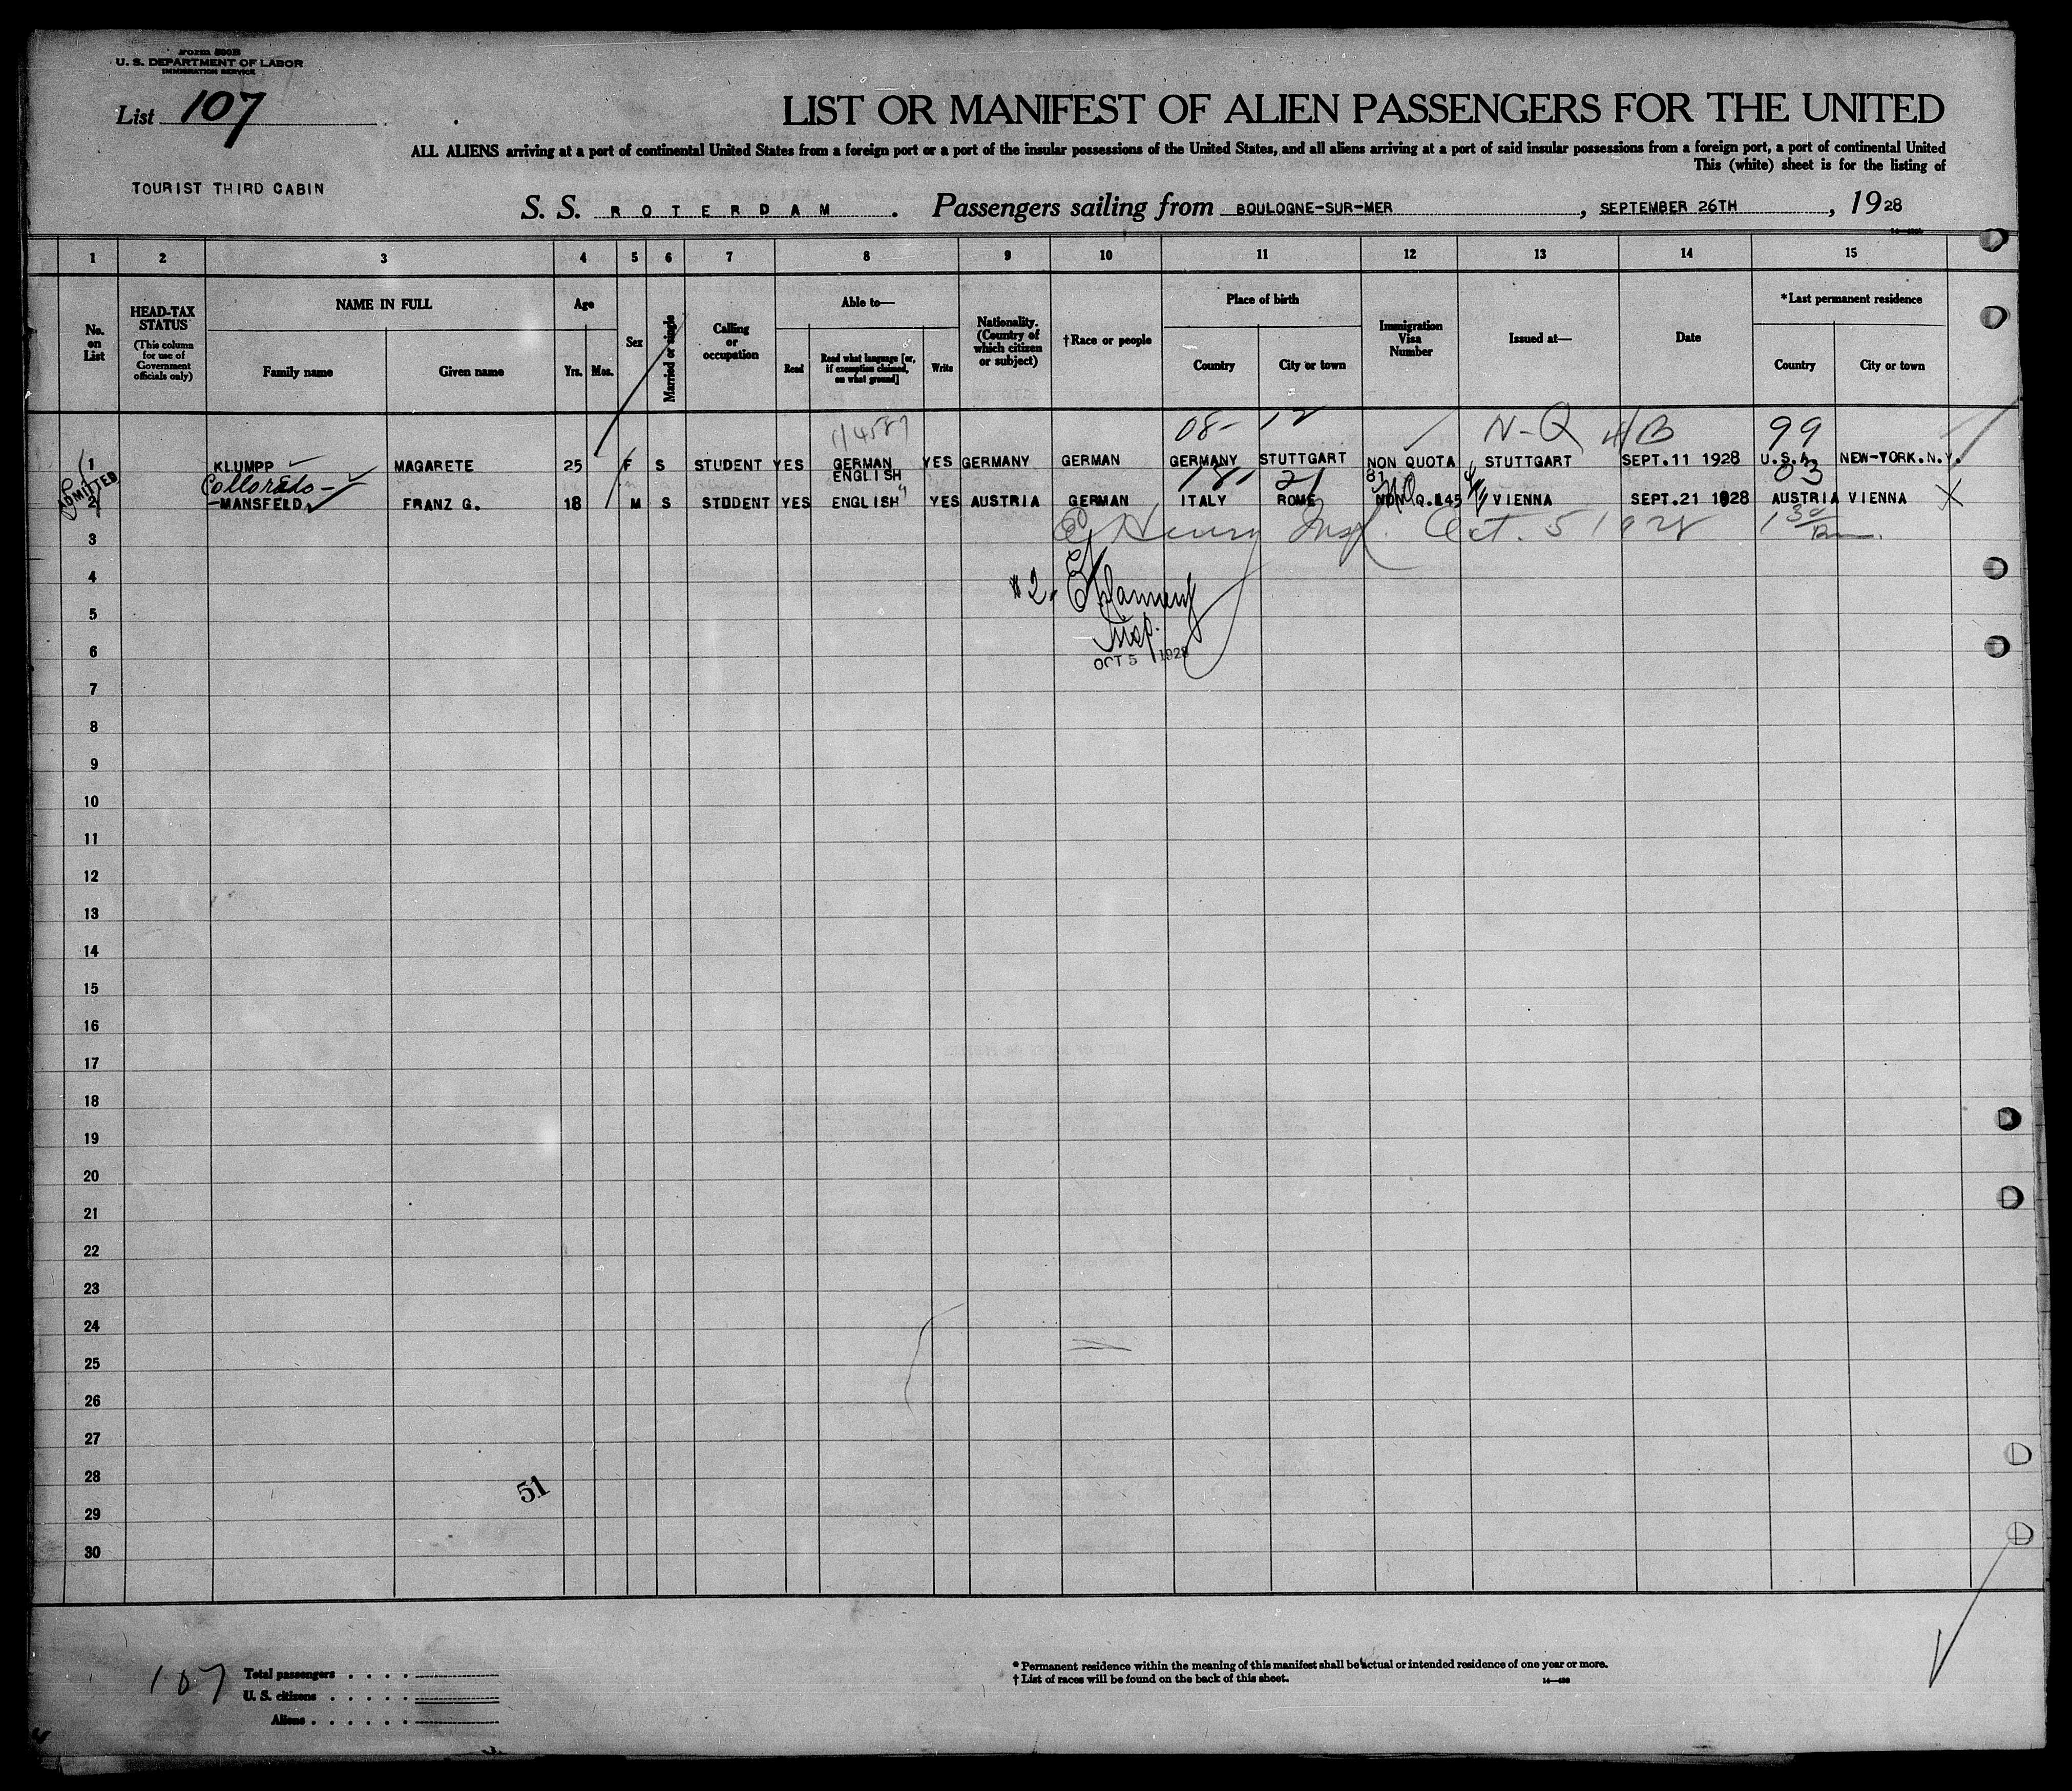 Form 500B
U. S. DEPARTMENT OF LABOR
IMMIGRATION SERVICE
List 107
LIST OR MANIFEST OF ALIEN PASSENGERS FOR THE UNITED
ALL ALIENS arriving at a port of continental United States from a foreign port or a port of the insular possessions of the United States, and all aliens arriving at a port of said insular possessions from a foreign port, a port of continental United
This (white) sheet is for the listing of
TOURIST THIRD CABIN
S. S. ROTERDAM. Passengers sailing from BOULOGNE-SUR-MER, SEPTEMBER 26TH, 1928
1 2 3 4 5 6 7 8 9 10 11 12 13 14 15
No. on List
HEAD-TAX STATUS (This column for use of Government officials only)
NAME IN FULL
Family name
Given name
Age
Yrs.
Mos.
Sex
Married or single
Calling or occupation
Able to—
Read
Read what language [or, if exemption claimed, on what ground]
Write
Nationality. (Country of which citizen or subject)
†Race or people
Place of birth
Country
City or town
Immigration Visa Number
Issued at—
Date
*Last permanent residence
Country
City or town
08- 12 N-Q 4/B 99
1 KLUMPP MAGARETE 25 F S STUDENT YES GERMAN ENGLISH YES GERMANY GERMAN GERMANY STUTTGART NON QUOTA STUTTGART SEPT.11 1928 U.S.A. NEW-YORK.N.Y.
ADMITTED
Collorado-
18 21 03
2 -MANSFELD FRANZ G. 18 M S STUDENT YES ENGLISH YES AUSTRIA GERMAN ITALY ROME NON Q.145 VIENNA SEPT.21 1928 AUSTRIA VIENNA X
Henry Insp. Oct. 5 1928
3
4
#2.
5
Insp.
6
OCT 5 1928
7
8
9
10
11
12
13
14
15
16
17
18
19
20
21
22
23
24
25
26
27
28
51
29
30
107
Total passengers
U. S. citizens
Aliens
* Permanent residence within the meaning of this manifest shall be actual or intended residence of one year or more.
† List of races will be found on the back of this sheet.